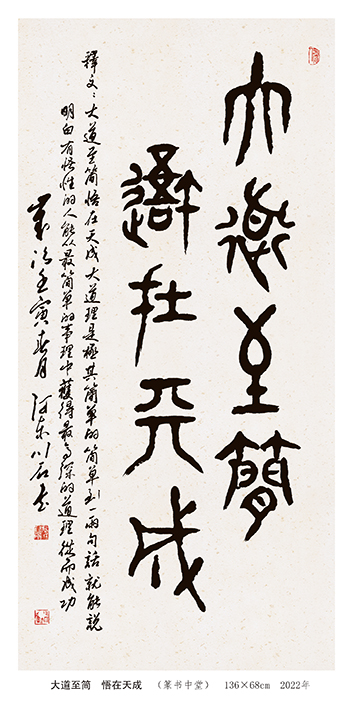 大道至簡
悟在天成
釋文：大道至简悟在天成大道理是極其简單的简單到一兩句話就能說
明白有悟性的人能从最简單的事理中獲得最高深的道理從而成功
歲次壬寅春月河东川石书
大道至简　悟在天成　（篆书中堂）　136×68cm　2022年